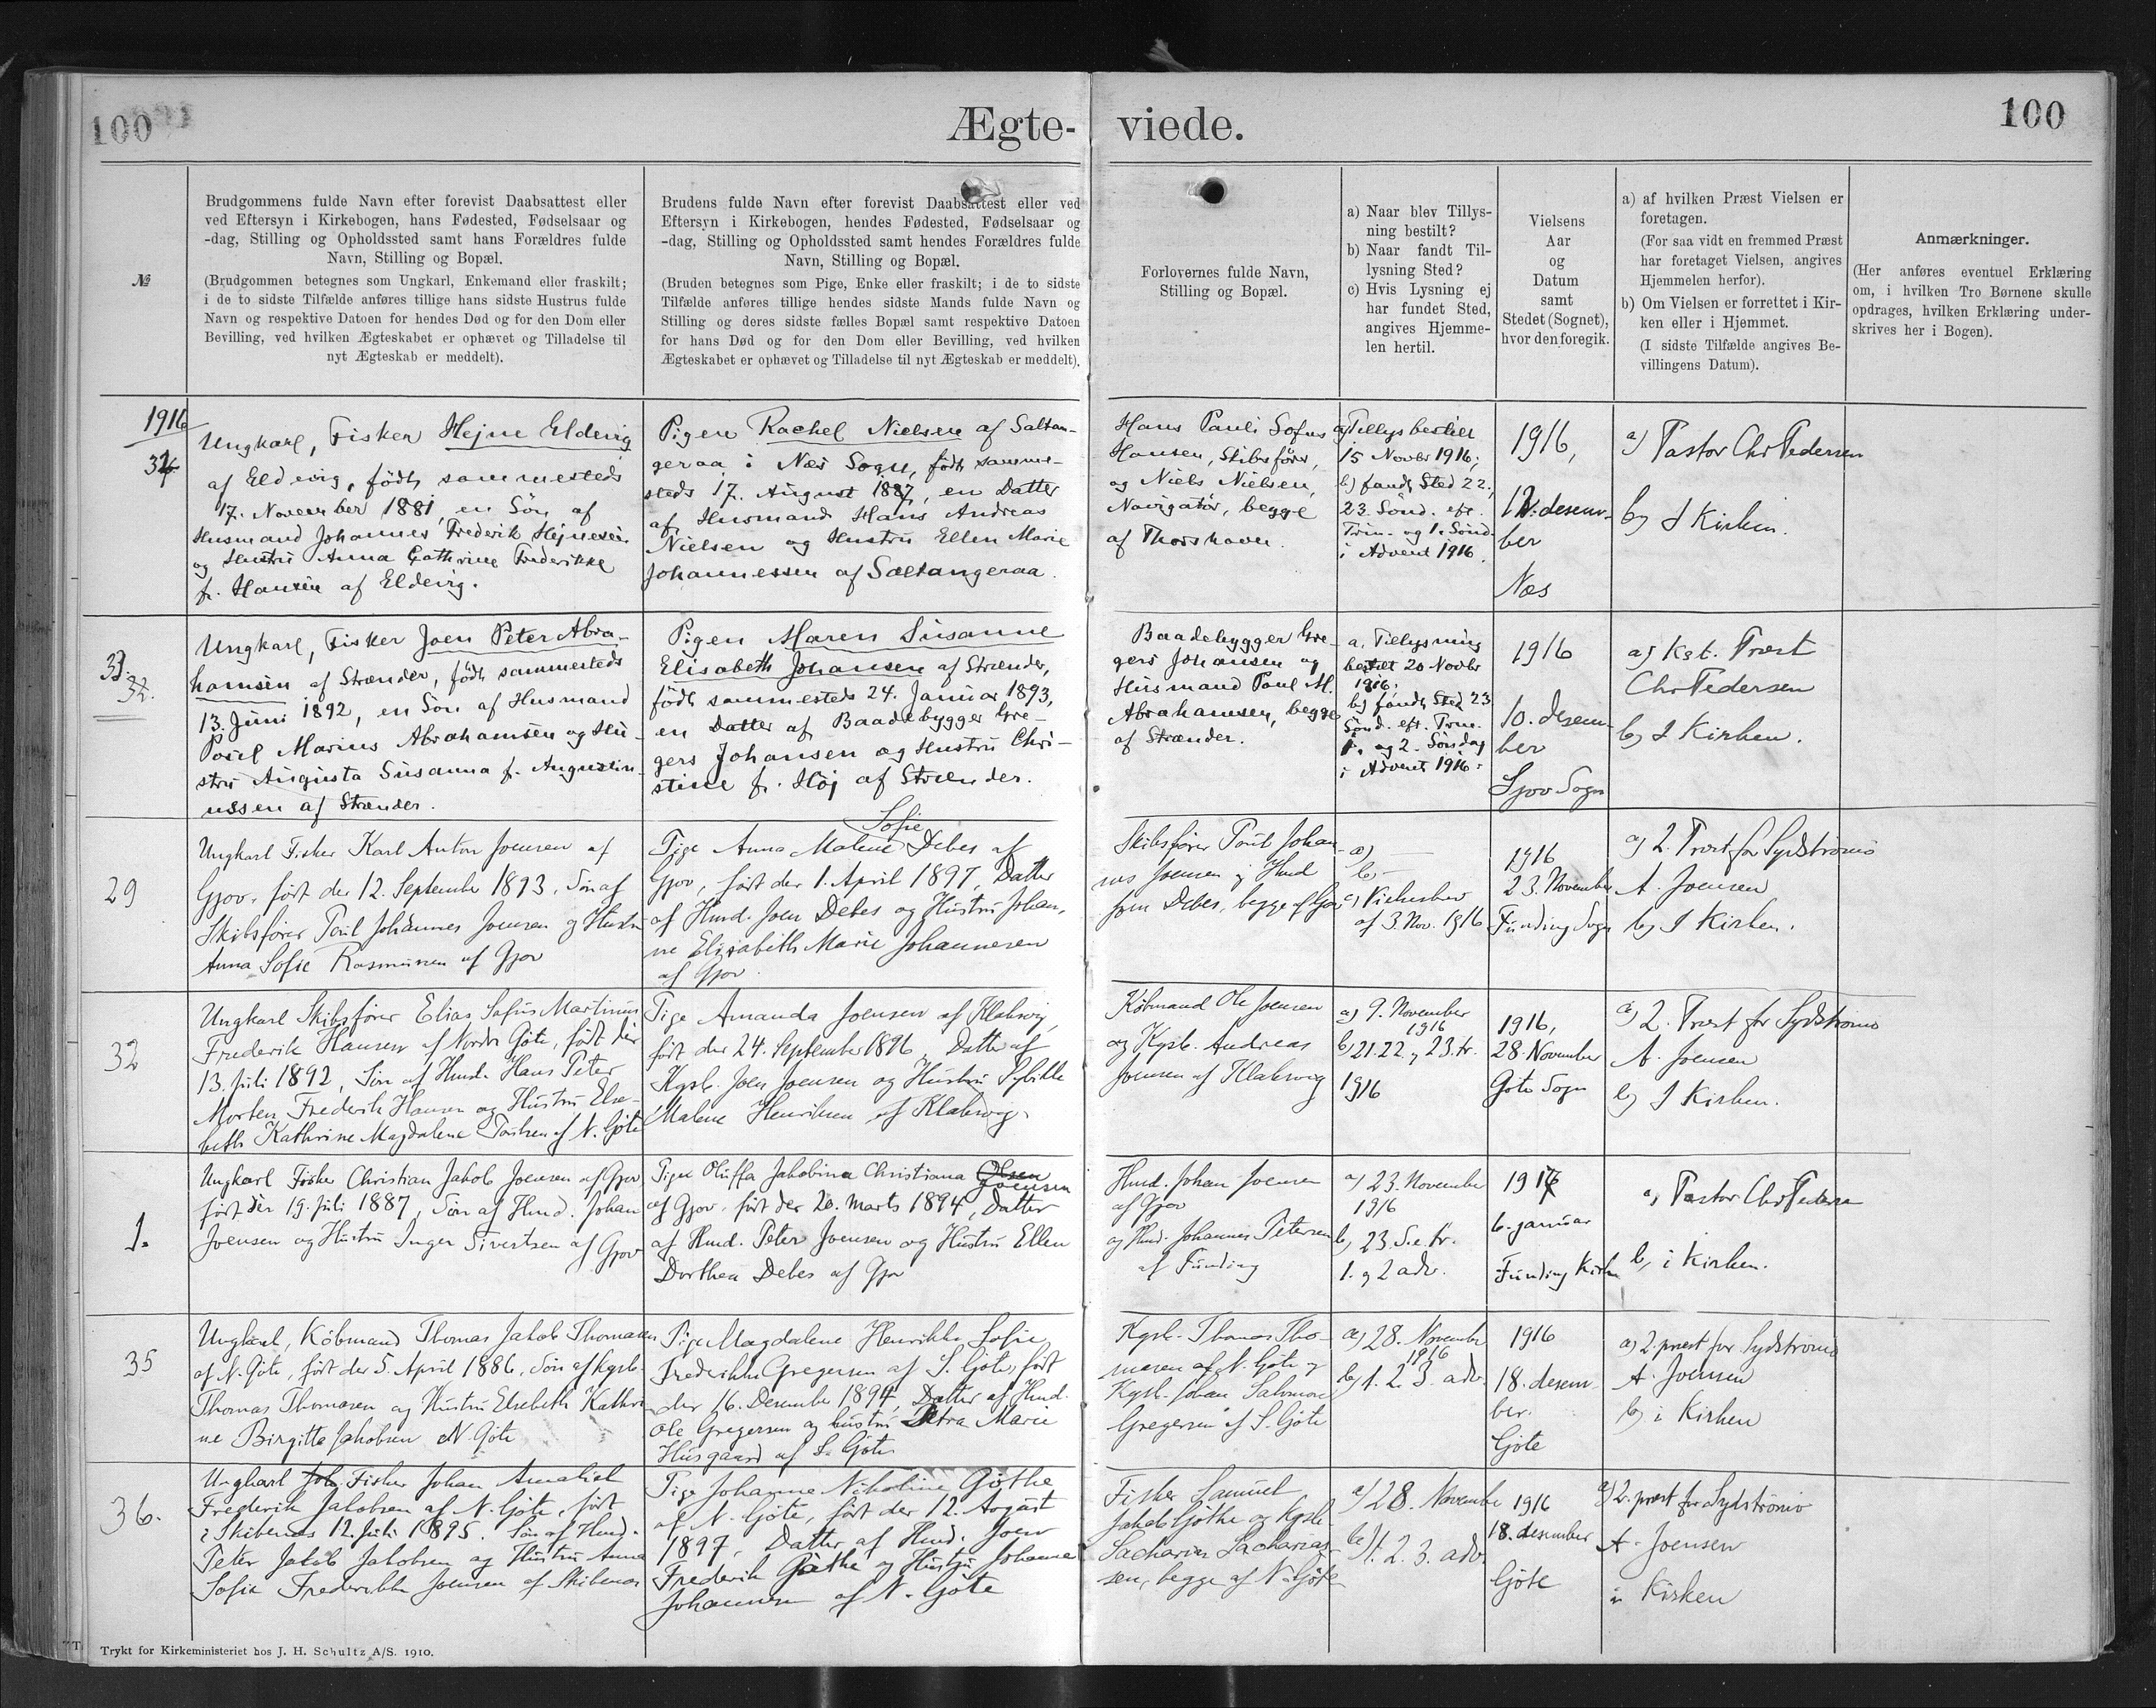 100
Ægte-
viede.
100
№
Brudgommens fulde Navn efter forevist Daabsattest eller
ved Eftersyn i Kirkebogen, hans Fødested, Fødselsaar og
-dag, Stilling og Opholdssted samt hans Forældres fulde
Navn, Stilling og Bopæl.
(Brudgommen betegnes som Ungkarl, Enkemand eller fraskilt;
i de to sidste Tilfælde anføres tillige hans sidste Hustrus fulde
Navn og respektive Datoen for hendes Død og for den Dom eller
Bevilling, ved hvilken Ægteskabet er ophævet og Tilladelse til
nyt Ægteskab er meddelt).
Brudens fulde Navn efter forevist Daabsattest eller ved
Eftersyn i Kirkebogen, hendes Fødested, Fødselsaar og
-dag, Stilling og Opholdssted samt hendes Forældres fulde
Navn, Stilling og Bopæl.
(Bruden betegnes som Pige, Enke eller fraskilt; i de to sidste
Tilfælde anføres tillige hendes sidste Mands fulde Navn og
Stilling og deres sidste fælles Bopæl samt respektive Datoen
for hans Død og for den Dom eller Bevilling, ved hvilken
Ægteskabet er ophævet og Tilladelse til nyt Ægteskab er meddelt).
Forlovernes fulde Navn,
Stilling og Bopæl.
a) Naar blev Tillys-
ning bestilt?
b) Naar fandt Til-
lysning Sted?
c) Hvis Lysning ej
har fundet Sted,
angives Hjemme-
len hertil.
Vielsens
Aar
og
Datum
samt
Stedet (Sognet),
hvor den foregik.
a) af hvilken Præst Vielsen er
foretagen.
(For saa vidt en fremmed Præst
har foretaget Vielsen, angives
Hjemmelen herfor).
b) Om Vielsen er forrettet i Kir-
ken eller i Hjemmet.
(I sidste Tilfælde angives Be-
villingens Datum).
Anmærkninger.
(Her anføres eventuel Erklæring
om, i hvilken Tro Børnene skulle
opdrages, hvilken Erklæring under-
skrives her i Bogen).
1916
Ungkarl, Fisker Hejne Eldevig
af Eldevig, født sammesteds
17. November 1881, en Søn af
Husmand Johannes Frederik Hejnesen
og Hustru Anna Cathrine Frederikke
f. Hansen af Eldevig.
Pigen Rachel Nielsen af Saltan-
geraa i Næs Sogn, født samme-
steds 17. August 1887, en Datter
af Husmand Hans Andreas
Nielsen og Hustru Ellen Marie
Johannessen af Saltangeraa.
Hans Pauli Sofus
Hansen, Skibsfører,
og Niels Nielsen,
Navigatør, begge
af Thorshavn.
a) Tillys bestilt
15 Novbr 1916;
b) fandt Sted 22.,
23. Sønd. eft.
Trin. og 1. Sønd.
i Advent 1916.
1916,
12. desem-
ber
Næs
a) Pastor Chr Pedersen
b) I Kirken.
33.
32.
Ungkarl, Fisker Joen Peter Abra-
hamsen af Strænder, født sammesteds
13. Juni 1892, en Søn af Husmand
Poul Marius Abrahamsen og Hu-
stru Augusta Susanna f. Augustin-
ussen af Strænder.
Pigen Maren Susanne
Elisabeth Johansen af Strænder,
født sammesteds 24. Januar 1893,
en Datter af Baadebygger Gre-
gers Johansen og Hustru Chri-
stine f. Høj af Strænder.
Baadebygger Gre-
gers Johansen og
Husmand Poul M.
Abrahamsen, begge
af Strænder.
a, Tillysning
bestilt 20 Novbr
1916;
b) fandt Sted 23
Sønd. eft. Trin.
1. og 2. Søndag
i Advent 1916.
1916
10. desem-
ber
Sjov Sogn
a) Kst. Præst
Chr Pedersen
b) I Kirken.
29
Ungkarl Fisker Karl Anton Joensen af
Gjov, født den 12. September 1893, Søn af
Skibsfører Poul Johannes Joensen og Hustru
Anna Sofie Rasmussen af Gjov
Sofie
Pige Anna Malene Debes af
Gjov, født den 1. April 1897, Datter
af Hmd. Joen Debes og Hustru Johan-
ne Elisabeth Marie Johannesen
af Gjov.
Skibsfører Poul Johan-
nes Joensen og Hmd
Joen Debes, begge af Gjov
a) —
b) —
c) Vielsesbrev
af 3. Nov. 1916
1916
23. November
Funding Sogn
a) 2. Præst for Sydstrømø
A. Joensen
b) I Kirken.
32
Ungkarl Skibsfører Elias Sofus Martinus
Frederik Hansen af Nordre Gøte, født den
13. Juli 1892, Søn af Hmd. Hans Peter
Morten Frederik Hansen og Hustru Else-
beth Kathrine Magdalene Poulsen af N. Gøte
Pige Amanda Joensen af Klaksvig,
født den 24. September 1896, Datter af
Kgsb. Joen Joensen og Hustru Sybille
Malene Henriksen af Klaksvig.
Købmand Ole Joensen
og Kgsb. Andreas
Joensen af Klaksvig
a) 9. November
1916
b) 21. 22. og 23. tr.
1916
1916,
28. November
Gøte Sogn
a) 2. Præst for Sydstrømø
A. Joensen
b) I Kirken.
1.
Ungkarl Fisker Christian Jakob Joensen af Gjov
født den 19. Juli 1887, Søn af Hmd. Johan
Joensen og Hustru Inger Sivertsen af Gjov
Pige Oluffa Jakobina Christiana Olsen
Joensen
af Gjov, født den 20. Marts 1894, Datter
af Hmd. Peter Joensen og Hustru Ellen
Dorthea Debes af Gjov
Hmd. Johan Joensen
af Gjov
og Hmd. Johannes Petersen
af Funding
a) 23. November
1916
b) 23. S. e. tr.
1. og 2 adv.
1917
6. januar
Funding Kirke
a) Pastor Chr Pedersen
b, i Kirken.
35
Ungkarl, Købmand Thomas Jakob Thomasen
af N. Gøte, født den 5. April 1886, Søn af Kgsb.
Thomas Thomasen og Hustru Elsebeth Kathri-
ne Birgitte Jakobsen N. Gøte
Pige Magdalene Henrikke Sofie
Frederikke Gregersen af S. Gøte, født
den 16. Desember 1894, Datter af Hmd.
Ole Gregersen og hustru Petra Marie
Husgaard af S. Gøte
Kgsb. Thomas Tho-
masen af N. Gøte og
Kgsb. Johan Salomon
Gregersen af S. Gøte
a) 28. November
1916
b) 1. 2. 3. adv.
1916
18. desem-
ber.
Gøte
a) 2. præst for Sydstrømø
A. Joensen
b) i Kirken
36.
Ungkarl Joh. Fisker Johan Amaliel
Frederik Jakobsen af N. Gøte, født
i Skibenæs 12. Juli 1895. Søn af Hmd.
Peter Jakob Jakobsen og Hustru Anna
Sofie Frederikke Joensen af Skibenæs
Pige Johanne Nikoline Gøthe
af N. Gøte, født den 12. August
1897, Datter af Hmd. Joen
Frederik Gøthe og Hustru Johanne
Johannesen af N. Gøte
Fisker Samuel
Jakob Gøthe og Kgsb.
Sacharias Sacharias-
sen, begge af N. Gøte
a) 28. November
b) 1. 2. 3. adv.
1916
18. desember
Gøte
a) 2. præst for Sydstrømø
A. Joensen
i Kirken
Trykt for Kirkeministeriet hos J. H. Schultz A/S. 1910.